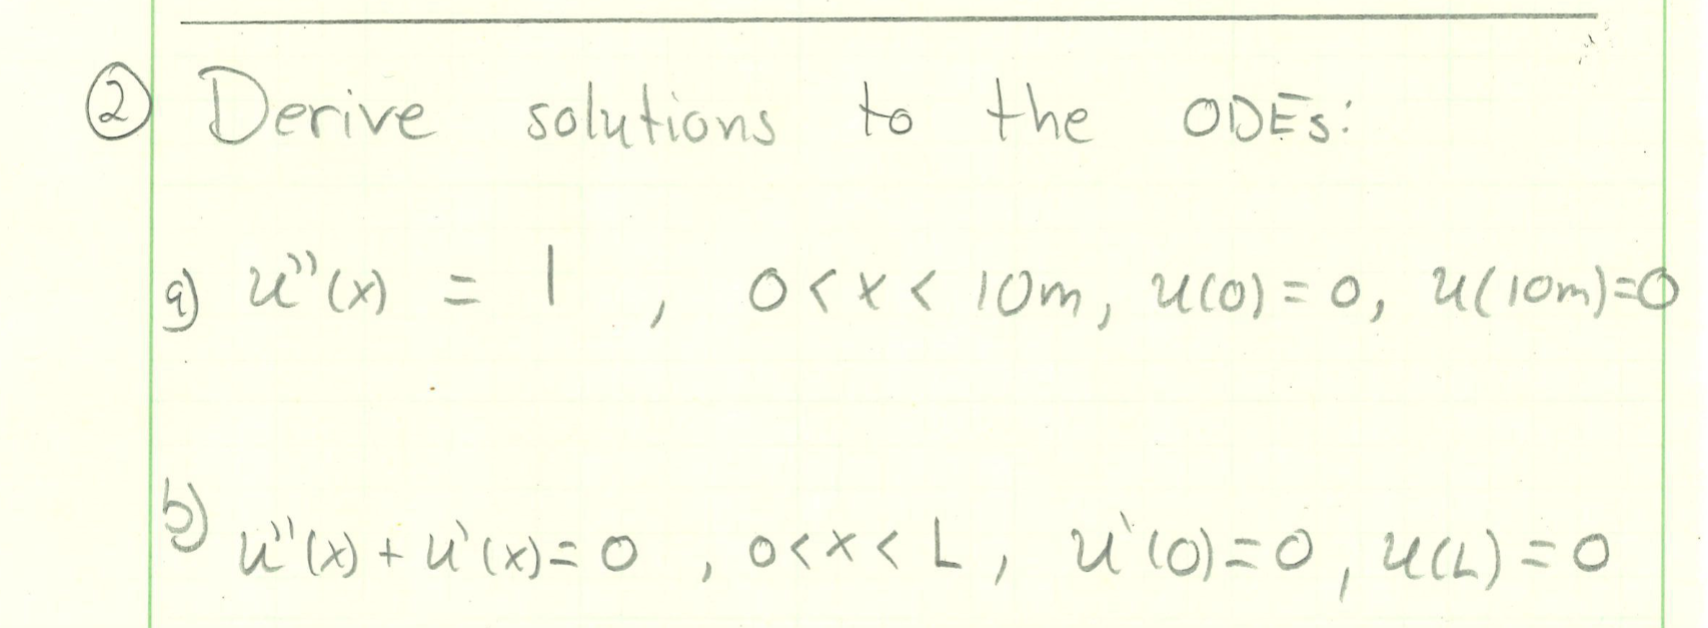 ② Derive solutions to the ODEs:
a) u''(x) = 1 , 0 < x < 10m, u(0) = 0, u(10m)=0
b) u''(x) + u'(x) = 0 , 0 < x < L , u'(0) = 0 , u(L) = 0